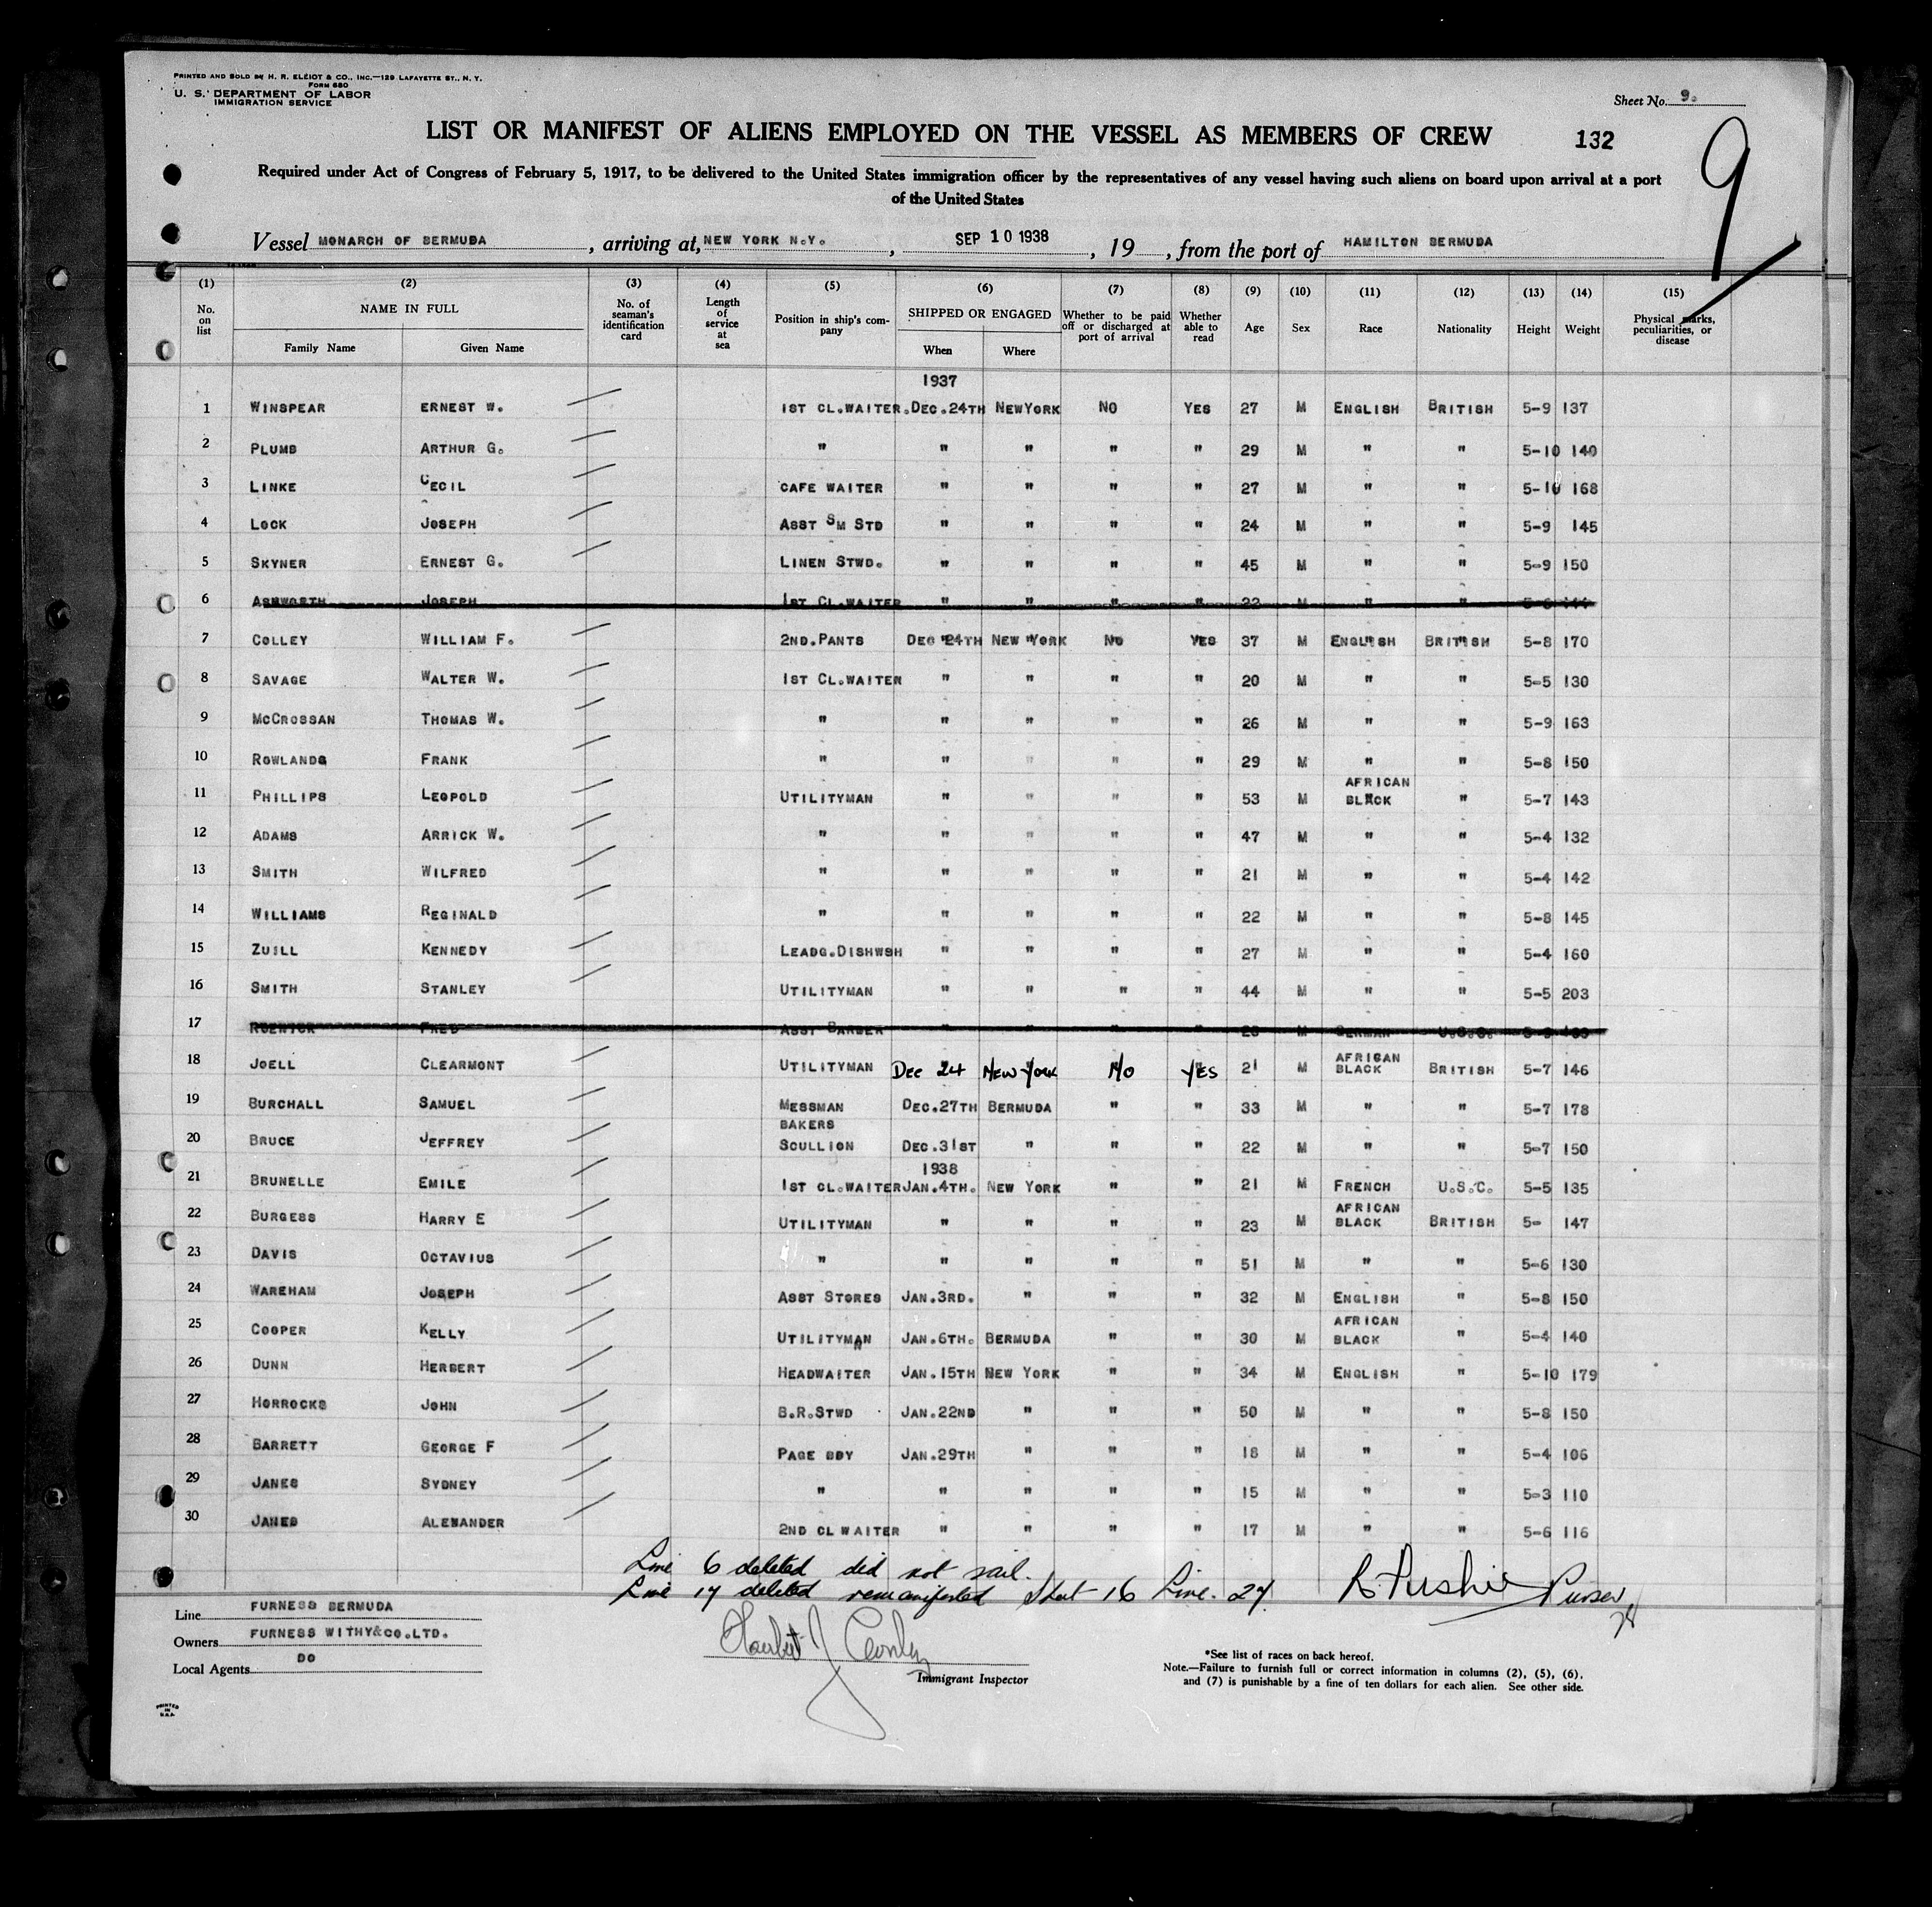 PRINTED AND SOLD BY H. R. ELLIOT & CO., INC.—129 LAFAYETTE ST., N. Y.
FORM 680
U. S. DEPARTMENT OF LABOR
IMMIGRATION SERVICE
Sheet No. 9.
LIST OR MANIFEST OF ALIENS EMPLOYED ON THE VESSEL AS MEMBERS OF CREW 132
9
Required under Act of Congress of February 5, 1917, to be delivered to the United States immigration officer by the representatives of any vessel having such aliens on board upon arrival at a port
of the United States
Vessel MONARCH OF BERMUDA, arriving at, NEW YORK N.Y., SEP 10 1938, 19 , from the port of HAMILTON BERMUDA
(1) (2) (3) (4) (5) (6) (7) (8) (9) (10) (11) (12) (13) (14) (15)
No. on list NAME IN FULL Family Name Given Name No. of seaman's identification card Length of service at sea Position in ship's company SHIPPED OR ENGAGED When Where Whether to be paid off or discharged at port of arrival Whether able to read Age Sex Race Nationality Height Weight Physical marks, peculiarities, or disease
1937
1 WINSPEAR ERNEST W. 1ST CL.WAITER. DEC.24TH NEWYORK NO YES 27 M ENGLISH BRITISH 5-9 137
2 PLUMB ARTHUR G. " " " " " 29 M " " 5-10 140
3 LINKE CECIL CAFE WAITER " " " " 27 M " " 5-10 168
4 LOCK JOSEPH ASST SM STD " " " " 24 M " " 5-9 145
5 SKYNER ERNEST G. LINEN STWD. " " " " 45 M " " 5-9 150
6 ASHWORTH JOSEPH 1ST CL.WAITER " " " " 22 M " "
7 COLLEY WILLIAM F. 2ND.PANTS DEC 24TH NEW YORK NO YES 37 M ENGLISH BRITISH 5-8 170
8 SAVAGE WALTER W. 1ST CL.WAITER " " " " 20 M " " 5-5 130
9 MCCROSSAN THOMAS W. " " " " " 26 M " " 5-9 163
10 ROWLANDS FRANK " " " " " 29 M " " 5-8 150
11 PHILLIPS LEOPOLD UTILITYMAN " " " " 53 M AFRICAN BLACK " 5-7 143
12 ADAMS ARRICK W. " " " " " 47 M " " 5-4 132
13 SMITH WILFRED " " " " " 21 M " " 5-4 142
14 WILLIAMS REGINALD " " " " " 22 M " " 5-8 145
15 ZUILL KENNEDY LEADG.DISHWSH " " " " 27 M " " 5-4 160
16 SMITH STANLEY UTILITYMAN " " " " 44 M " " 5-5 203
17 FRED ASST BARBER " " " " M GERMAN U.S.C.
18 JOELL CLEARMONT UTILITYMAN Dec 24 New York No YES 21 M AFRICAN BLACK BRITISH 5-7 146
19 BURCHALL SAMUEL MESSMAN DEC.27TH BERMUDA " " 33 M " " 5-7 178
20 BRUCE JEFFREY BAKERS SCULLION DEC.31ST " " " 22 M " " 5-7 150
1938
21 BRUNELLE EMILE 1ST CL.WAITER JAN.4TH. NEW YORK " " 21 M FRENCH U.S.C. 5-5 135
22 BURGESS HARRY E UTILITYMAN " " " " 23 M AFRICAN BLACK BRITISH 5- 147
23 DAVIS OCTAVIUS " " " " " 51 M " " 5-6 130
24 WAREHAM JOSEPH ASST STORES JAN.3RD. " " " 32 M ENGLISH " 5-8 150
25 COOPER KELLY UTILITYMAN JAN.6TH. BERMUDA " " 30 M AFRICAN BLACK " 5-4 140
26 DUNN HERBERT HEADWAITER JAN.15TH NEW YORK " " 34 M ENGLISH " 5-10 179
27 HORROCKS JOHN B.R.STWD JAN.22ND " " " 50 M " " 5-8 150
28 BARRETT GEORGE F PAGE BOY JAN.29TH " " " 18 M " " 5-4 106
29 JANES SYDNEY " " " " " 15 M " " 5-3 110
30 JANES ALEXANDER 2ND CL WAITER " " " " 17 M " " 5-6 116
Line 6 deleted did not sail.
Line 17 deleted remanifested Sheet 16 Line. 27.
Purser
Line FURNESS BERMUDA
Owners FURNESS WITHY&CO.LTD.
Local Agents DO
Immigrant Inspector
*See list of races on back hereof.
Note.—Failure to furnish full or correct information in columns (2), (5), (6),
and (7) is punishable by a fine of ten dollars for each alien. See other side.
PRINTED
IN
U.S.A.